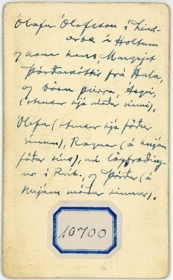 Ólafur Ólafsson í Lind-
arbæ í Holtum
og kona hans Margrét
Þórðardóttir frá Hala,
og börn þeirra,
(stendur hjá móður sinni),
Ólafur (stendur hjá föður
sínum), Ragnar (á hnjám
föður síns), nú lögfræðing-
ur í Rvík, og Þórður (á
hnjám móður sinnar).
10700